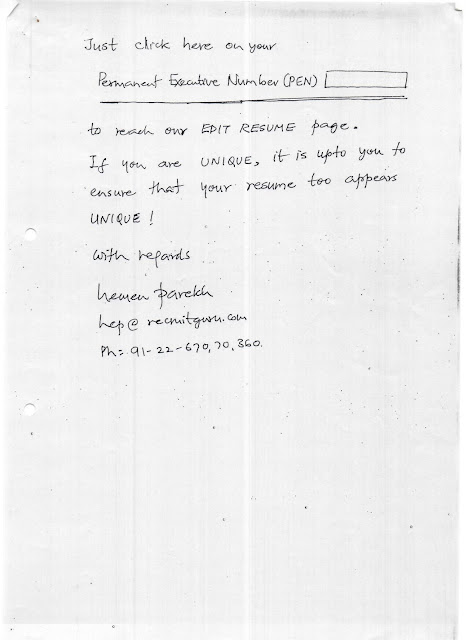 Just click here on your
Permanent Executive Number (PEN)
to reach our EDIT RESUME page.
If you are UNIQUE, it is upto you to
ensure that your resume too appears
UNIQUE!
With regards
hemen parekh
hep@recruitguru.com
Ph: 91-22-670,70,360.